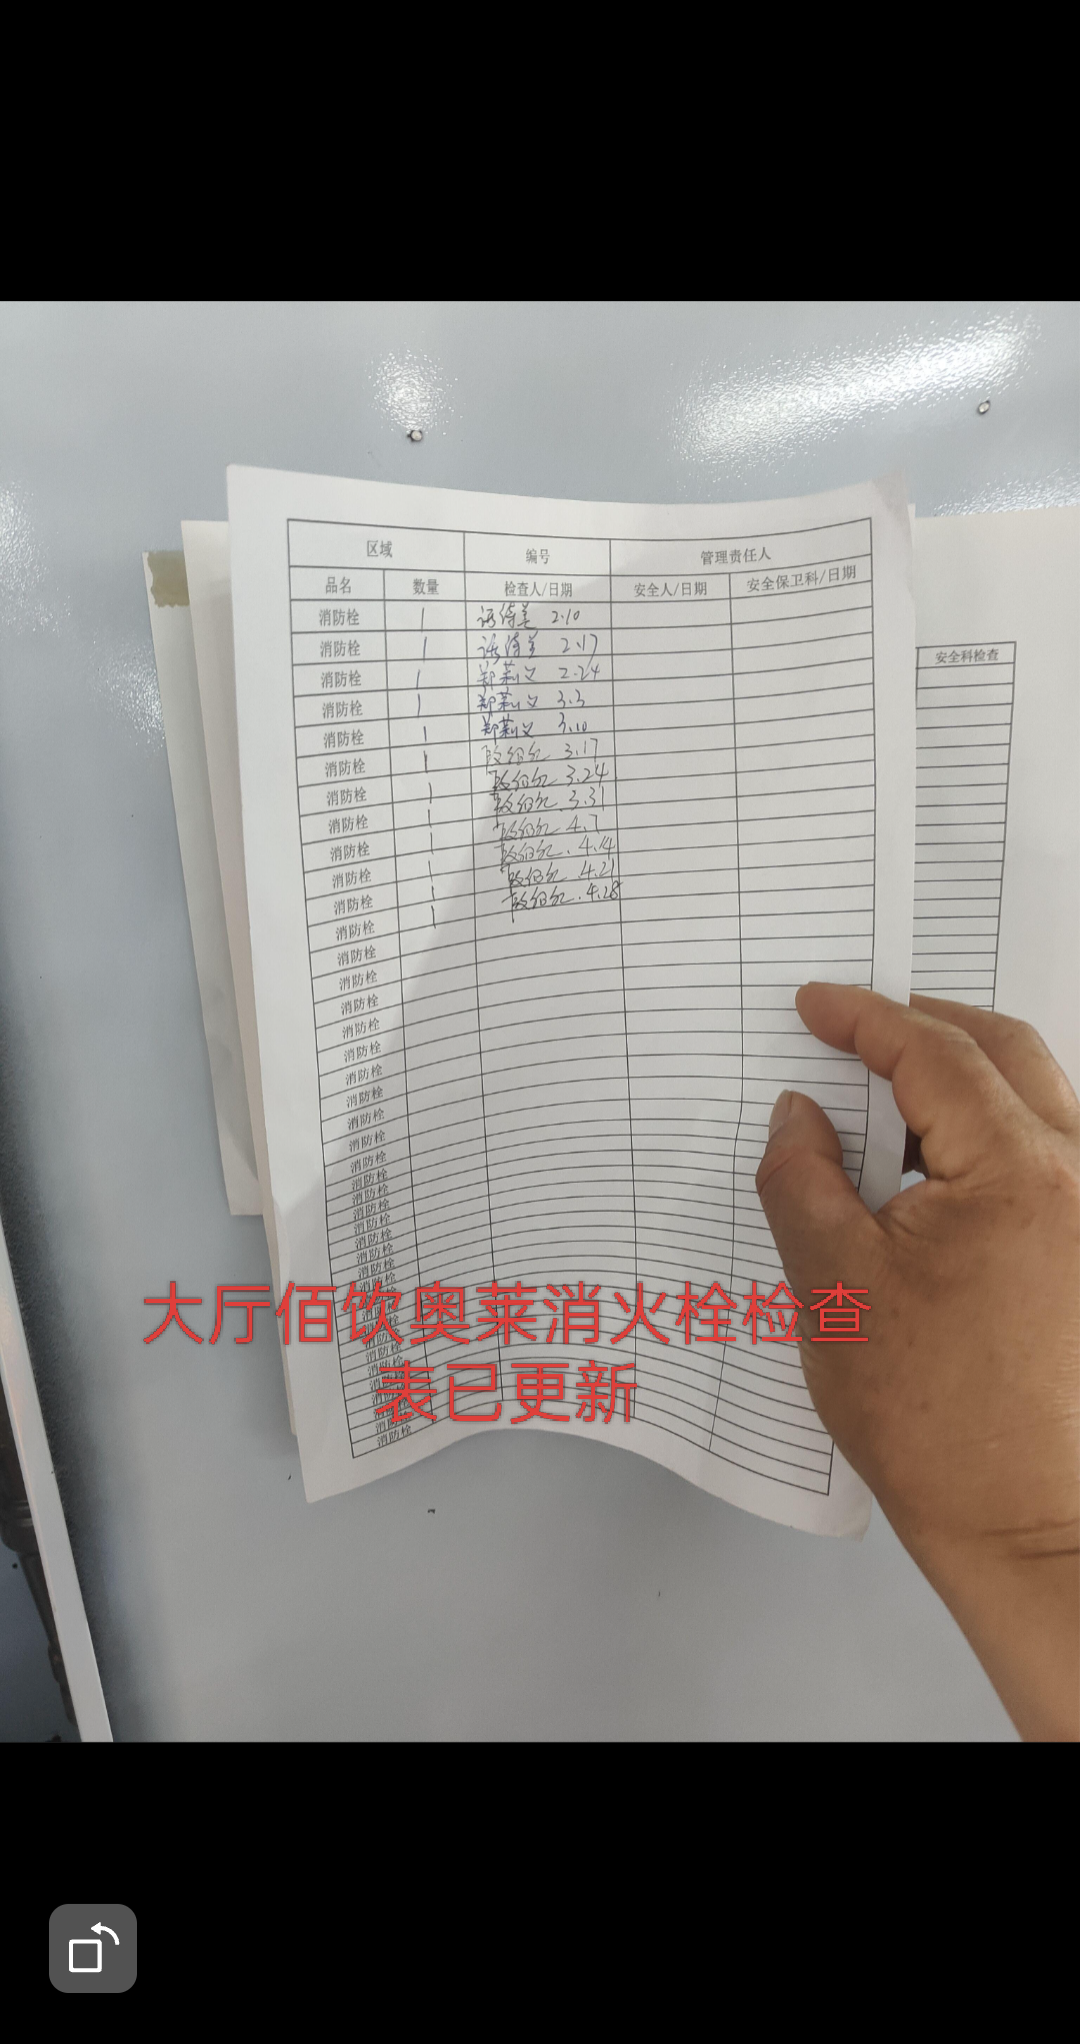 区域 编号 管理责任人
品名 数量 检查人/日期 安全人/日期 安全保卫科/日期
消防栓 1 2.10
消防栓 1 2.17
消防栓 1 郑莉义 2.24
消防栓 1 郑莉义 3.3
消防栓 1 郑莉义 3.10
消防栓 1 3.17
消防栓 1 3.24
消防栓 1 3.31
消防栓 1 4.7
消防栓 1 4.14
消防栓 1 4.21
消防栓 1 4.28
消防栓
消防栓
消防栓
消防栓
消防栓
消防栓
消防栓
消防栓
消防栓
消防栓
消防栓
消防栓
消防栓
消防栓
消防栓
消防栓
消防栓
消防栓
消防栓
消防栓
消防栓
消防栓
消防栓
安全科检查
大厅佰饮奥莱消火栓检查
表已更新